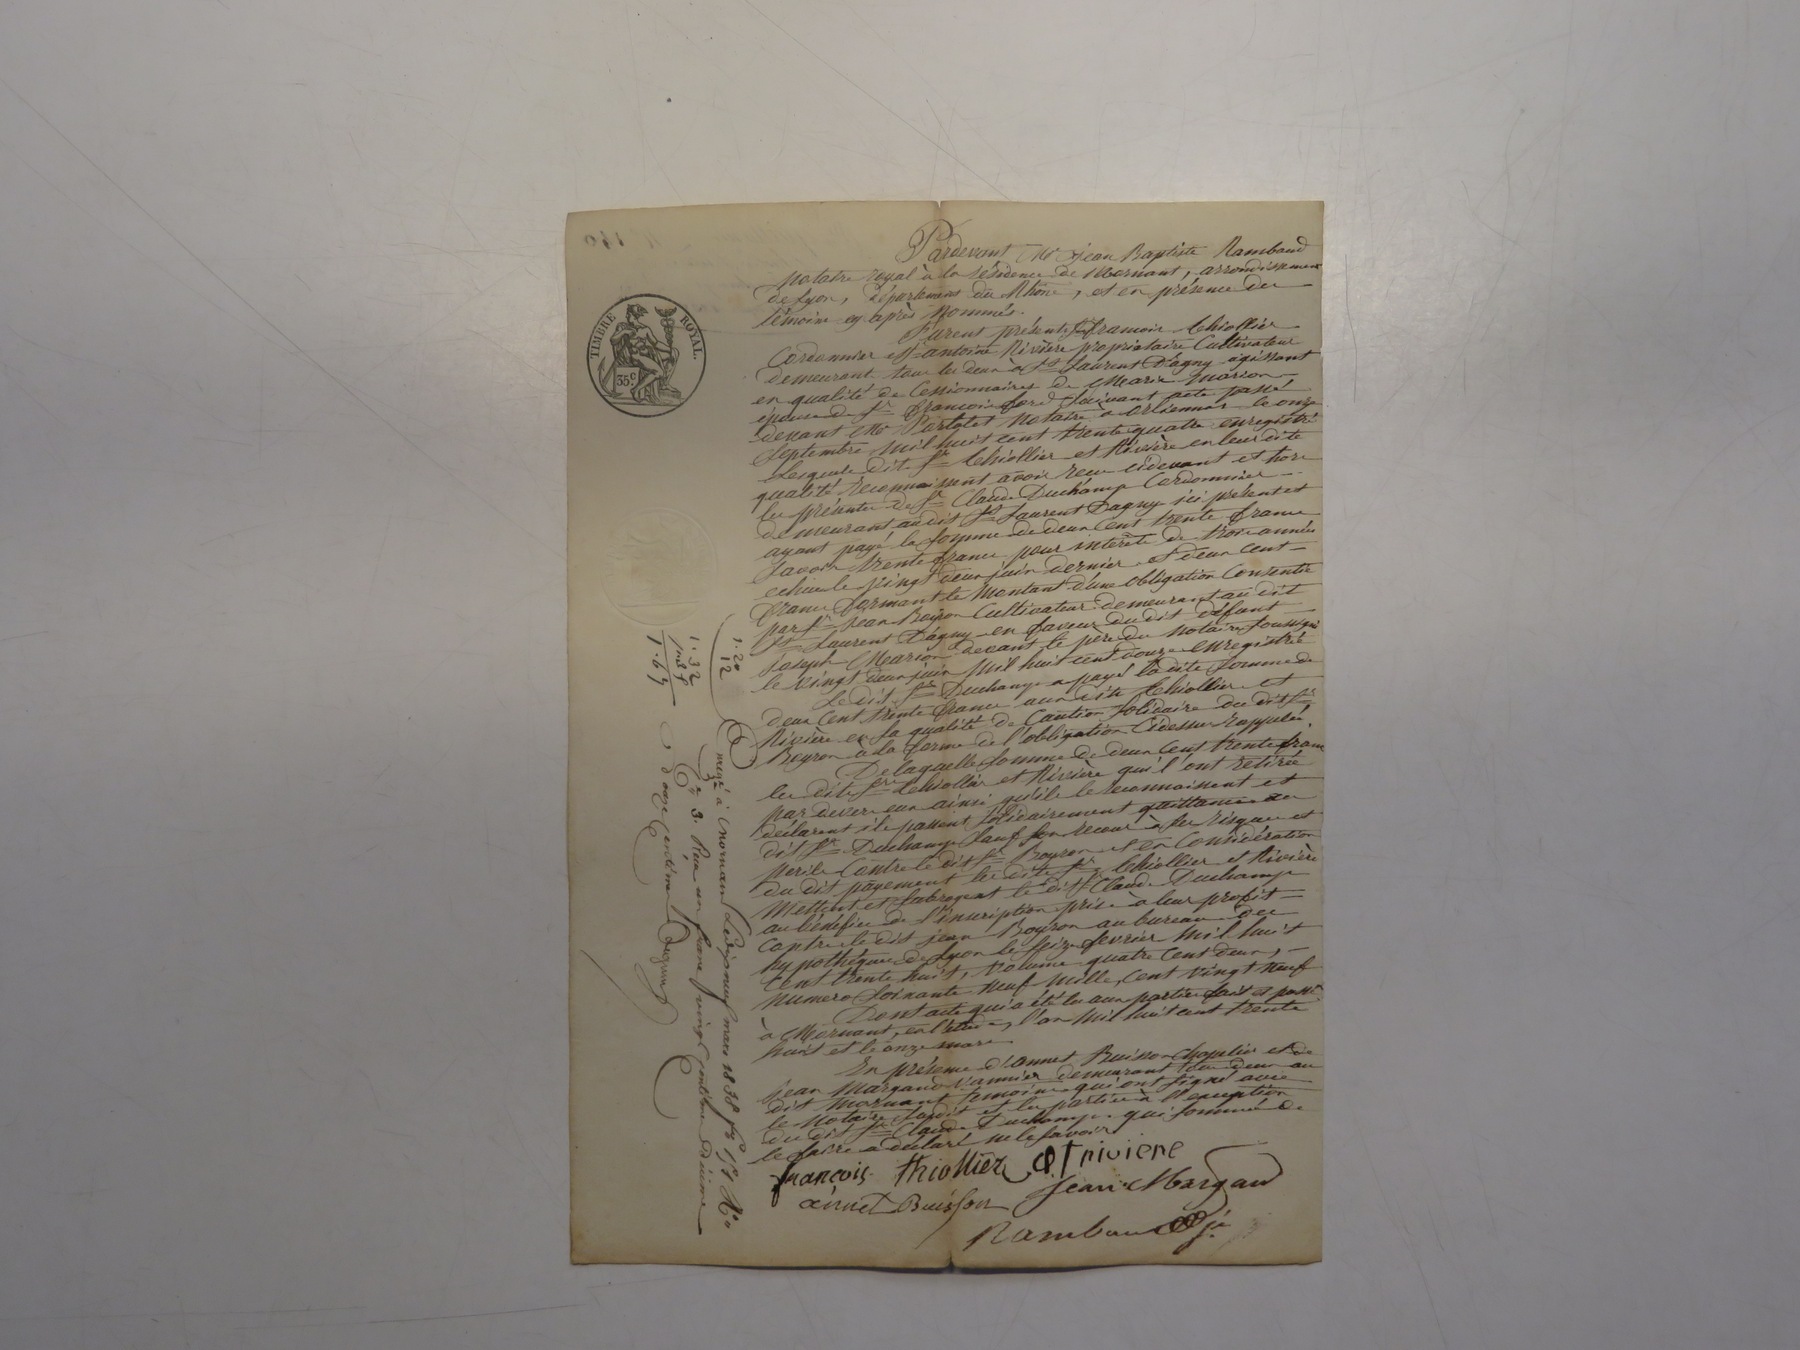 Pardevant Me Jean Baptiste Rambaud
Notaire royal à la résidence de Mornant, arrondissement
de Lyon, département du Rhône, et en présence des
témoins cy après Nommés.
Furent présents Sr françois thiollier
Cordonnier et Sr antoine Rivière propriétaire Cultivateur
demeurant tous les deux à St Laurent Dagny agissant
en qualité de Cessionnaires de Marie Marion
épouse de Sr françois suivant acte passé
devant Me Notaire à Orliennas le onze
Septembre mil huit cent trente quatre enregistré
Lesquels dits Srs thiollier et Rivière en leur dite
qualité reconnaissent avoir reçu cidevant et hors
les présentes de Sr Claude Duchamp Cordonnier
demeurant audit St Laurent Dagny ici présent et
ayant payé la somme de deux cent trente francs
Savoir trente francs pour intérêts de trois années
echues le vingt deux juin dernier et deux cent
francs formant le Montant d'une obligation Consentie
par Sr jean Boyron Cultivateur demeurant au dit
St Laurent Dagny en faveur du dit défunt
joseph Marion devant le père du Notaire soussigné
le vingt deux juin Mil huit cent douze enregistré
Le dit Sr Duchamp a payé la dite somme de
deux cent trente francs aux dits thiollier et
Rivière en sa qualité de Caution solidaire du dit Sr
Boyron à la forme de l'obligation Cidessus rappelée.
De laquelle somme de deux cent trente francs
les dits Srs thiollier et Rivière qu'ils ont retirée
par devers eux ainsi qu'ils le reconnaissent et
déclarent ils passent solidairement quittance au
dit Sr Duchamp sauf son recour à ses risques et
perils Contre le dit Sr Boyron et en Considération
du dit payement les dits Srs thiollier et Rivière
Mettent et subrogent le dit Sr Claude Duchamp
au bénéfice de l'inscription prise a leur profit
contre le dit jean Boyron au bureau des
hypothèques de Lyon le seize fevrier Mil huit
Cent trente huit, volume quatre cent deux,
numero soixante neuf mille, cent vingt neuf
Dont acte qui a été lu aux parties fait et passé
à Mornant, en l'étude, l'an Mil huit cent trente
huit et le onze mars
En présence d'annet Buisson Chapelier et de
jean Margand Vannier demeurant tous deux au
dit Mornant témoins qui ont signé avec
le Notaire susdit et les parties à l'exception
du dit Sr Claude Duchamp qui sommé de
le faire a déclaré ne le savoir
françois thiollier A riviere
annet Buisson Jean Margand
Rambaud
TIMBRE ROYAL.
35c
1.20
12
1.32
1.65
Enregé à Mornant Le neuf mars 1838 fo 151 Ro
Ce 3. Reçu un franc vingt centimes décime
douze centimes
140